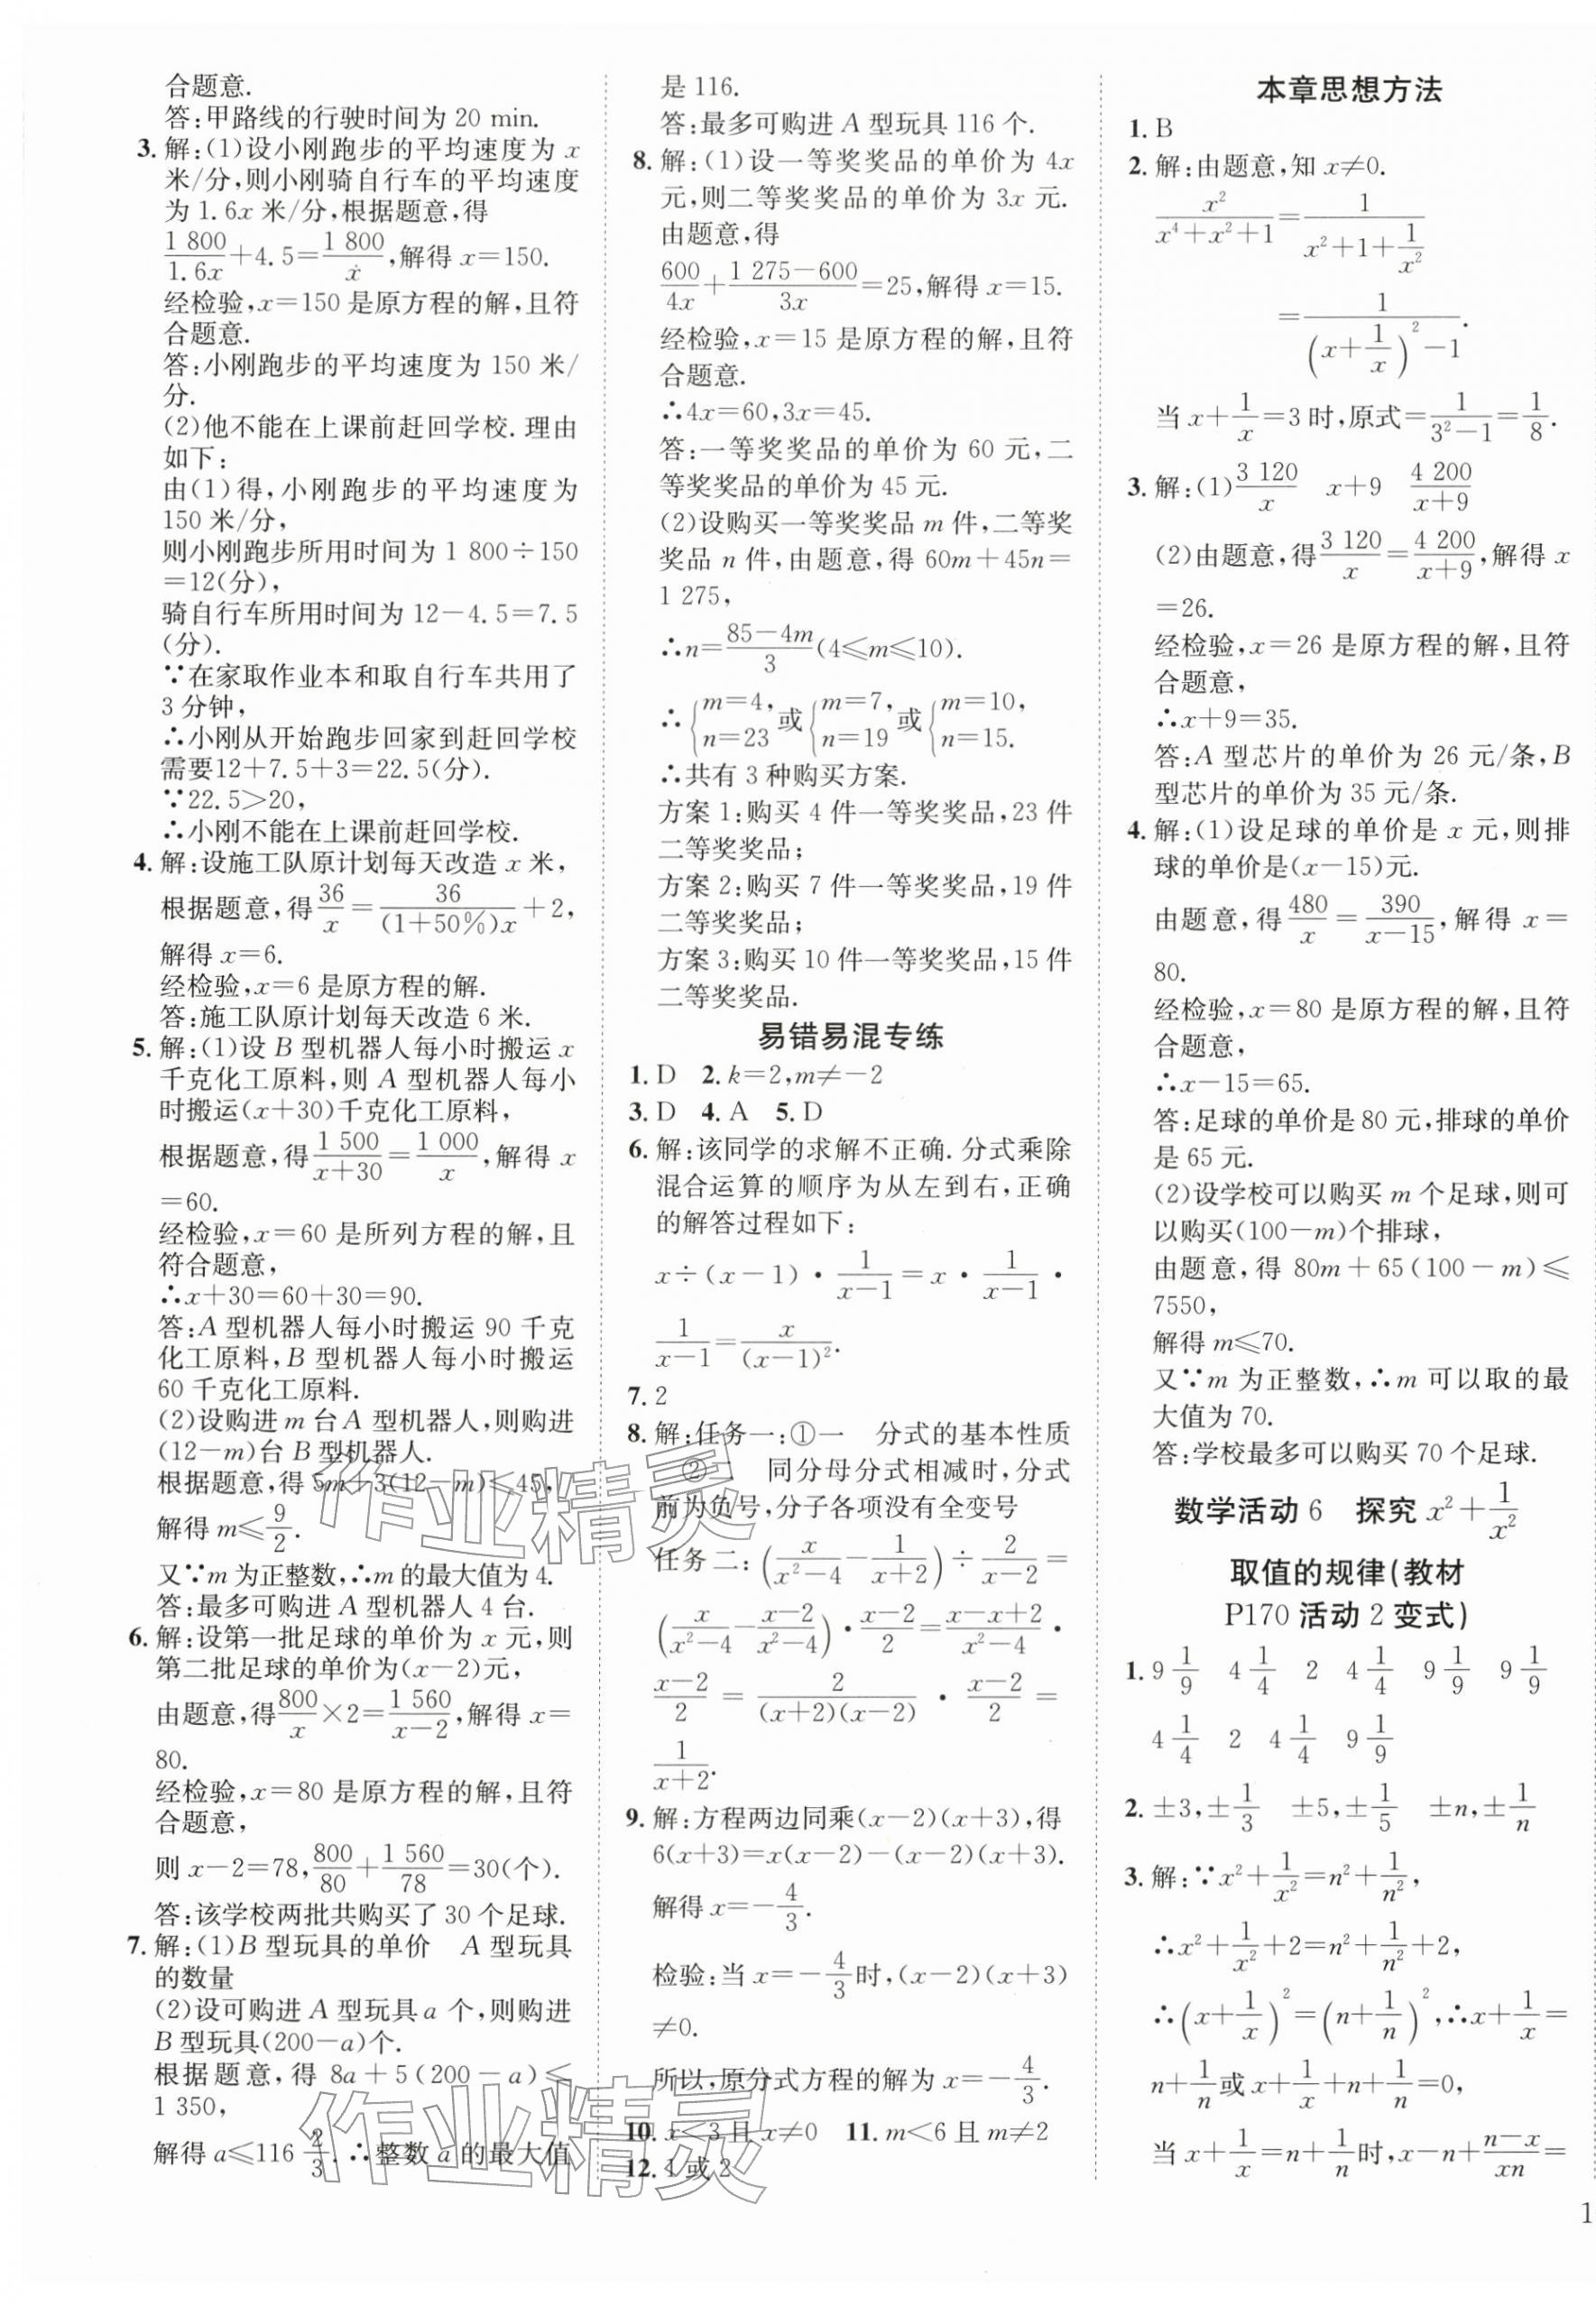 合题意.
答:甲路线的行驶时间为 20 min.
3. 解:(1)设小刚跑步的平均速度为 x
米/分,则小刚骑自行车的平均速度
为 1.6x 米/分,根据题意,得
1 800/1.6x+4.5=1 800/x,解得 x=150.
经检验,x=150 是原方程的解,且符
合题意.
答:小刚跑步的平均速度为 150 米/
分.
(2)他不能在上课前赶回学校.理由
如下:
由(1)得,小刚跑步的平均速度为
150 米/分,
则小刚跑步所用时间为 1 800÷150
=12(分),
骑自行车所用时间为 12-4.5=7.5
(分).
∵在家取作业本和取自行车共用了
3 分钟,
∴小刚从开始跑步回家到赶回学校
需要12+7.5+3=22.5(分).
∵22.5>20,
∴小刚不能在上课前赶回学校.
4. 解:设施工队原计划每天改造 x 米,
根据题意,得36/x=36/((1+50%)x)+2,
解得 x=6.
经检验,x=6 是原方程的解.
答:施工队原计划每天改造 6 米.
5. 解:(1)设 B 型机器人每小时搬运 x
千克化工原料,则 A 型机器人每小
时搬运(x+30)千克化工原料,
根据题意,得1 500/(x+30)=1 000/x,解得 x
=60.
经检验,x=60 是所列方程的解,且
符合题意,
∴x+30=60+30=90.
答:A 型机器人每小时搬运 90 千克
化工原料,B 型机器人每小时搬运
60 千克化工原料.
(2)设购进 m 台 A 型机器人,则购进
(12-m)台 B 型机器人.
根据题意,得 5m+3(12-m)≤45,
解得 m≤9/2.
又∵m 为正整数,∴m 的最大值为 4.
答:最多可购进 A 型机器人 4 台.
6. 解:设第一批足球的单价为 x 元,则
第二批足球的单价为(x-2)元,
由题意,得800/x×2=1 560/(x-2),解得 x=
80.
经检验,x=80 是原方程的解,且符
合题意,
则 x-2=78,800/80+1 560/78=30(个).
答:该学校两批共购买了 30 个足球.
7. 解:(1)B 型玩具的单价 A 型玩具
的数量
(2)设可购进 A 型玩具 a 个,则购进
B 型玩具(200-a)个.
根据题意,得 8a+5(200-a)≤
1 350,
解得 a≤116 2/3.∴整数 a 的最大值
是 116.
答:最多可购进 A 型玩具 116 个.
8. 解:(1)设一等奖奖品的单价为 4x
元,则二等奖奖品的单价为 3x 元.
由题意,得
600/4x+(1 275-600)/3x=25,解得 x=15.
经检验,x=15 是原方程的解,且符
合题意.
∴4x=60,3x=45.
答:一等奖奖品的单价为 60 元,二
等奖奖品的单价为 45 元.
(2)设购买一等奖奖品 m 件,二等奖
奖品 n 件,由题意,得 60m+45n=
1 275,
∴n=(85-4m)/3(4≤m≤10).
∴{m=4,n=23 或{m=7,n=19 或{m=10,n=15.
∴共有 3 种购买方案.
方案 1:购买 4 件一等奖奖品,23 件
二等奖奖品;
方案 2:购买 7 件一等奖奖品,19 件
二等奖奖品;
方案 3:购买 10 件一等奖奖品,15 件
二等奖奖品.
易错易混专练
1. D 2. k=2,m≠-2
3. D 4. A 5. D
6. 解:该同学的求解不正确.分式乘除
混合运算的顺序为从左到右,正确
的解答过程如下:
x÷(x-1)·1/(x-1)=x·1/(x-1)·
1/(x-1)=x/(x-1)².
7. 2
8. 解:任务一:①一 分式的基本性质
②二 同分母分式相减时,分式
前为负号,分子各项没有全变号
任务二:(x/(x²-4)-1/(x+2))÷2/(x-2)=
(x/(x²-4)-(x-2)/(x²-4))·(x-2)/2=(x-x+2)/(x²-4)·
(x-2)/2=2/((x+2)(x-2))·(x-2)/2=
1/(x+2).
9. 解:方程两边同乘(x-2)(x+3),得
6(x+3)=x(x-2)-(x-2)(x+3).
解得 x=-4/3.
检验:当 x=-4/3时,(x-2)(x+3)
≠0.
所以,原分式方程的解为 x=-4/3.
10. x<3 且 x≠0 11. m<6 且 m≠2
12. 1 或 2
本章思想方法
1. B
2. 解:由题意,知 x≠0.
x²/(x⁴+x²+1)=1/(x²+1+1/x²)
=1/((x+1/x)²-1).
当 x+1/x=3 时,原式=1/(3²-1)=1/8.
3. 解:(1)3 120/x x+9 4 200/(x+9)
(2)由题意,得3 120/x=4 200/(x+9),解得 x
=26.
经检验,x=26 是原方程的解,且符
合题意,
∴x+9=35.
答:A 型芯片的单价为 26 元/条,B
型芯片的单价为 35 元/条.
4. 解:(1)设足球的单价是 x 元,则排
球的单价是(x-15)元.
由题意,得480/x=390/(x-15),解得 x=
80.
经检验,x=80 是原方程的解,且符
合题意,
∴x-15=65.
答:足球的单价是 80 元,排球的单价
是 65 元.
(2)设学校可以购买 m 个足球,则可
以购买(100-m)个排球,
由题意,得 80m+65(100-m)≤
7550,
解得 m≤70.
又∵m 为正整数,∴m 可以取的最
大值为 70.
答:学校最多可以购买 70 个足球.
数学活动 6 探究 x²+1/x²
取值的规律(教材
P170 活动 2 变式)
1. 9 1/9 4 1/4 2 4 1/4 9 1/9 9 1/9
4 1/4 2 4 1/4 9 1/9
2. ±3,±1/3 ±5,±1/5 ±n,±1/n
3. 解:∵x²+1/x²=n²+1/n²,
∴x²+1/x²+2=n²+1/n²+2,
∴(x+1/x)²=(n+1/n)²,∴x+1/x=
n+1/n或 x+1/x+n+1/n=0,
当 x+1/x=n+1/n时,x-n+(n-x)/xn=
1
作业精灵
作业精灵